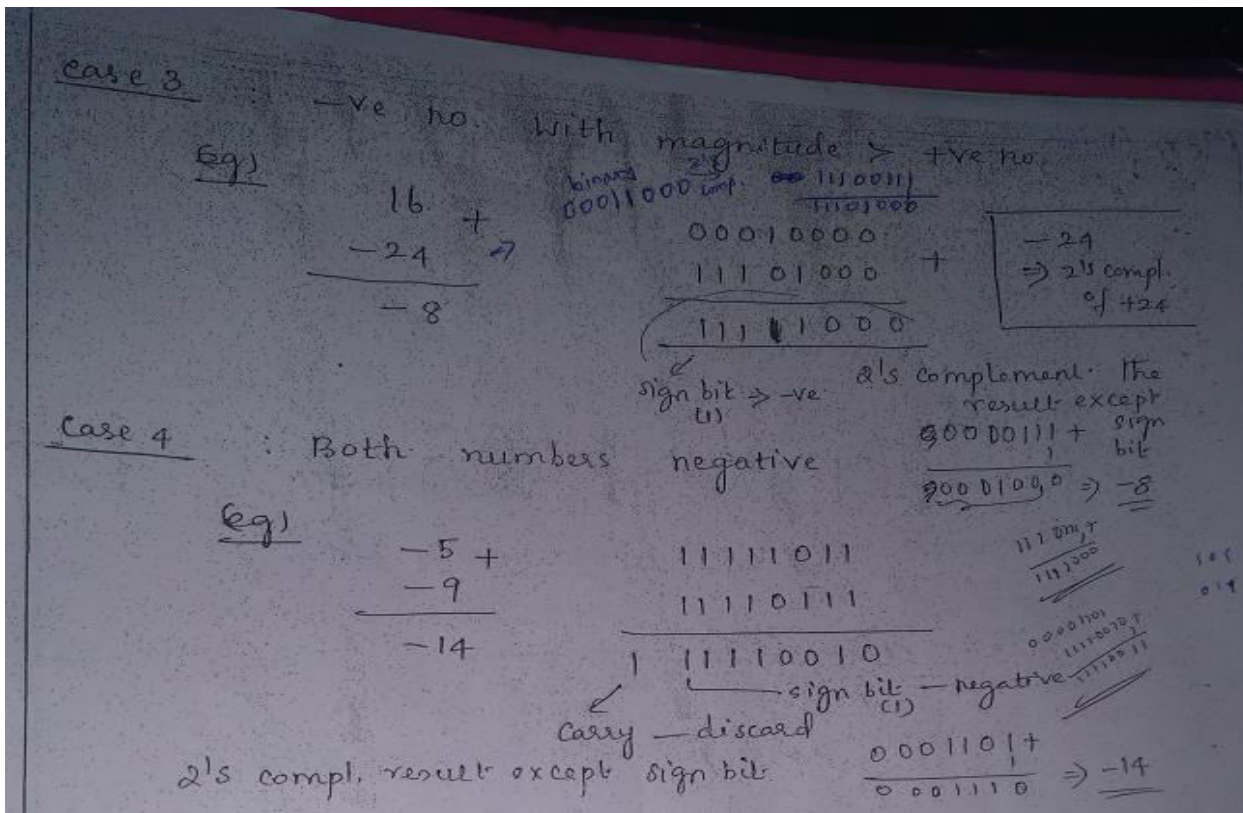 Case 3 : -ve no. With magnitude > +ve no.
Eg) 16 +
-24
-8
binary 00011000 2's comp. 11100111
11101000
00010000
11101000 +
11111000
-24
=> 2's compl.
of +24
sign bit => -ve
(1)
2's complement. The
result except
sign
bit
00000111 +
1
00001000 => -8
Case 4 : Both numbers negative
Eg)
-5 +
-9
-14
11111011
11110111
1 11110010
sign bit - negative
(1)
Carry - discard
2's compl. result except sign bit
0001101 +
1
0001110 => -14